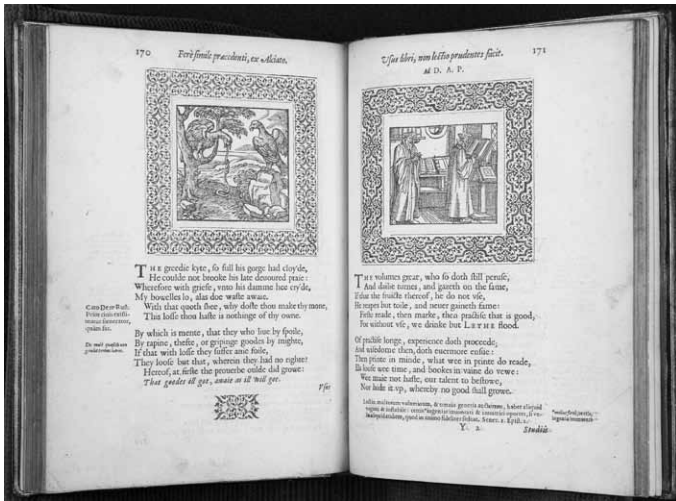 170
Ferè simile præcedenti, ex Alciato.
THE greedie kyte, so full his gorge had cloy'de,
He coulde not brooke his late devoured praie:
Wherefore with griefe, vnto his damme hee cry'de,
My bowelles lo, alas doe waste awaie.
With that quoth shee, why doste thou make thy mone,
This losse thou haste is nothinge of thy owne.
By which is mente, that they who liue by spoile,
By rapine, thefte, or gripinge goodes by mighte,
If that with losse they suffer anie foile,
They loose but that, wherein they had no righte?
Hereof, at firste the prouerbe oulde did growe:
That goodes ill got, awaie as ill will goe.
Vsus
171
Vsus libri, non lectio prudentes facit.
Ad D. A. P.
THE volumes great, who so doth still peruse,
And dailie turnes, and gazeth on the same,
If that the fruicte thereof, he do not vse,
He reapes but toile, and neuer gaineth fame:
Firste reade, then marke, then practise that is good,
For without vse, we drinke but LETHE flood.
Of practise longe, experience doth proceede;
And wisedome then, doth euermore ensue:
Then printe in minde, what wee in printe do reade,
Els loose wee time, and bookes in vaine do vewe:
Wee maie not haste, our talent to bestowe,
Nor hide it vp, whereby no good shall growe.
Y 2
Studiis